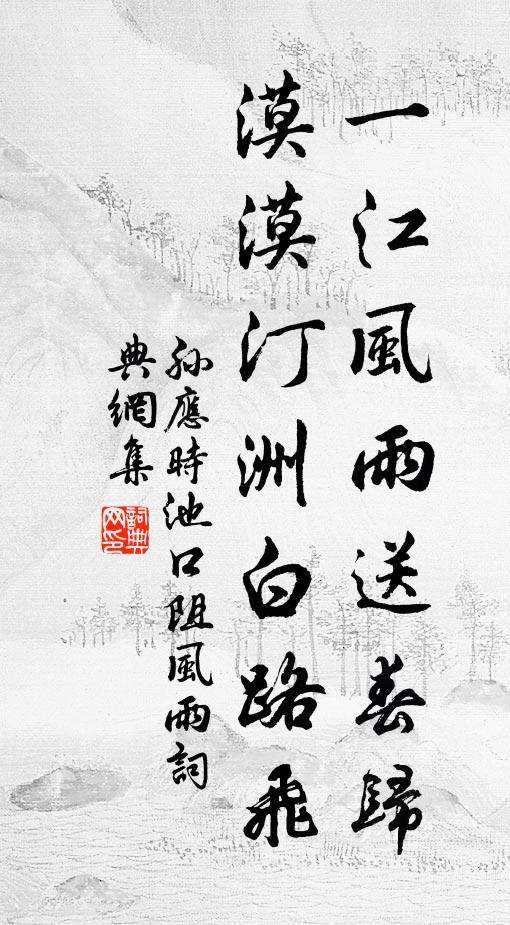 一江風雨送春歸
漠漠汀洲白路飛
孫應時池口阻風雨詞
典網集
詞典网印